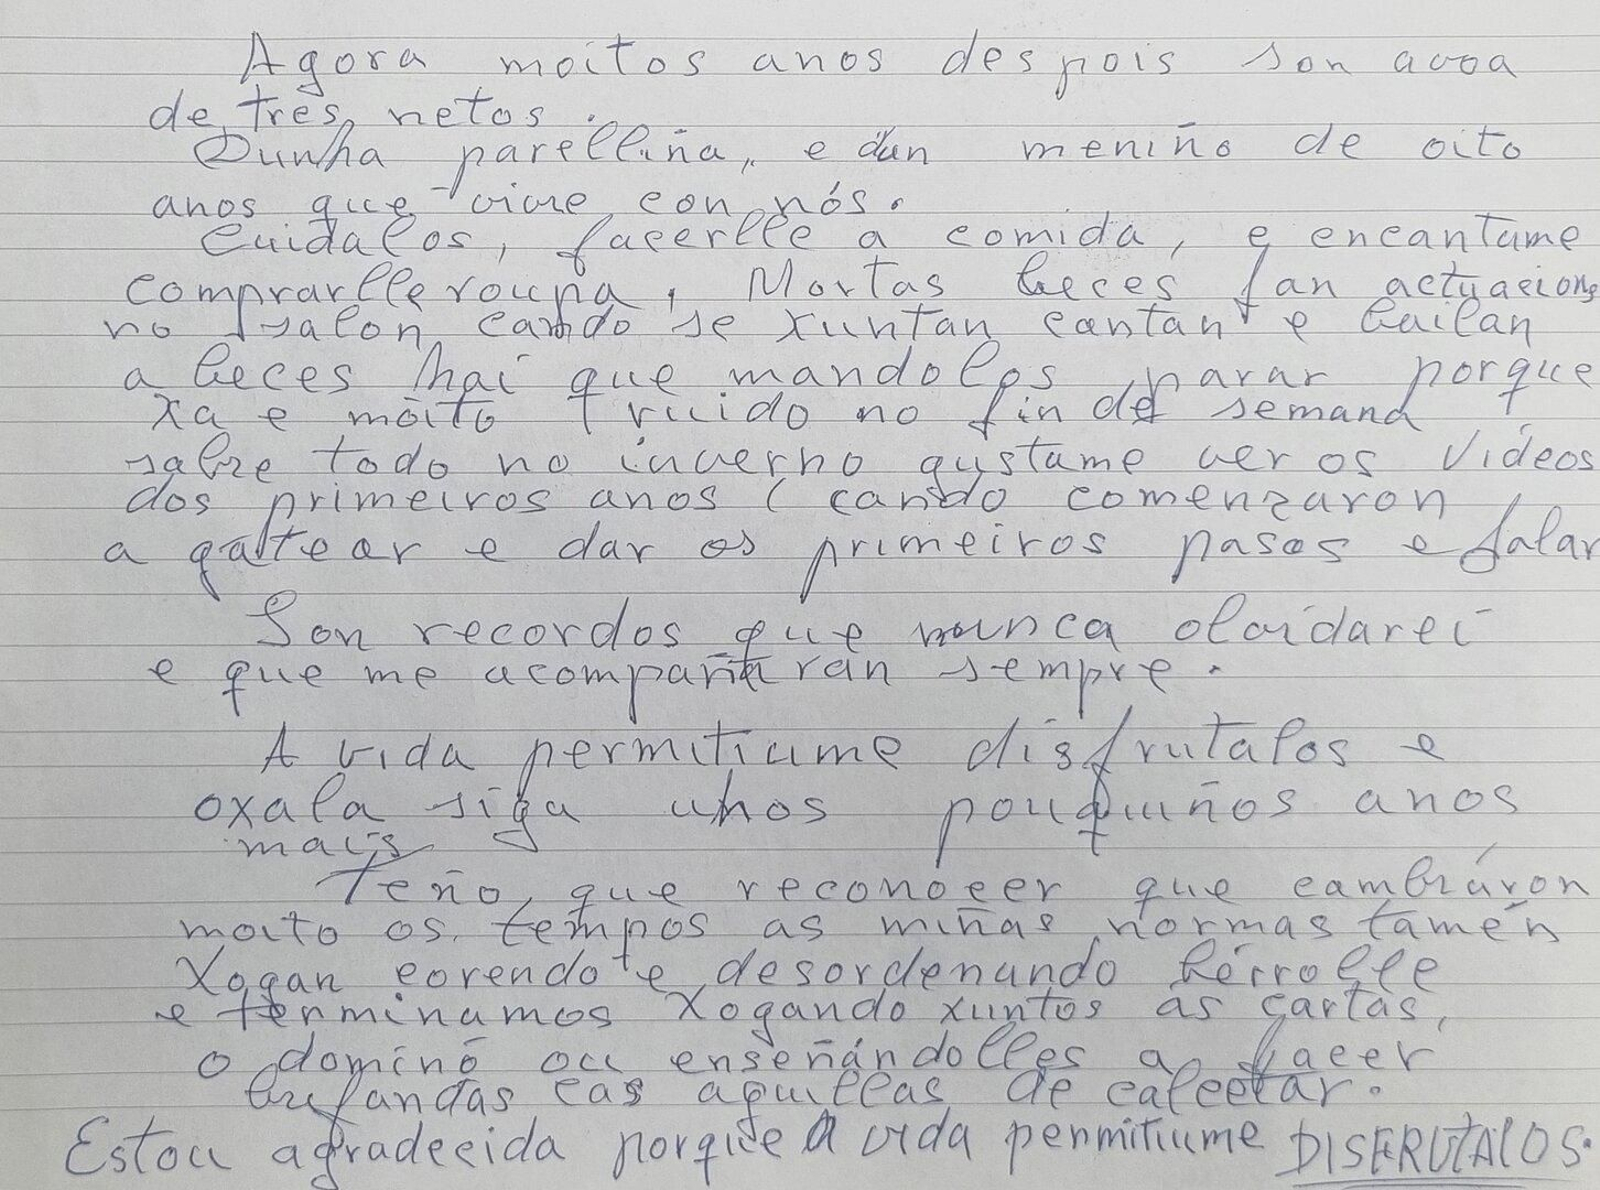 Agora moitos anos despois son avoa
de tres netos.
Dunha parelliña, e dun meniño de oito
anos que vive con nós.
Cuidalos, facerlle a comida, e encantame
comprarlle roupa, Moitas beces fan actuacions
no salón cando se xuntan cantan e bailan
a beces hai que mandolos parar porque
xa e moito ruido no fin de semana
sobre todo no inverno gustame ver os videos
dos primeiros anos (cando comenzaron
a gatear e dar os primeiros pasos e falar
Son recordos que nunca olvidarei
e que me acompañaran sempre.
A vida permitiume disfrutalos e
oxala siga unos pouquiños anos
mais
Teño que reconocer que cambiáron
moito os tempos as miñas normas tamén
Xogan corendo e desordenando bérrolle
e terminamos xogando xuntos as cartas,
o dominó ou enseñándolles a facer
bufandas cas aquillas de calcetar.
Estou agradecida porque A vida permitiume DISFRUTALOS.